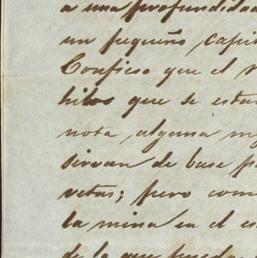 a una profundidad
un pequeño capi
Confieso que el
hilos que se esta
nota, alguna
sirvan de base p
vetas; pero com
la mina en el es
de lo que pueda